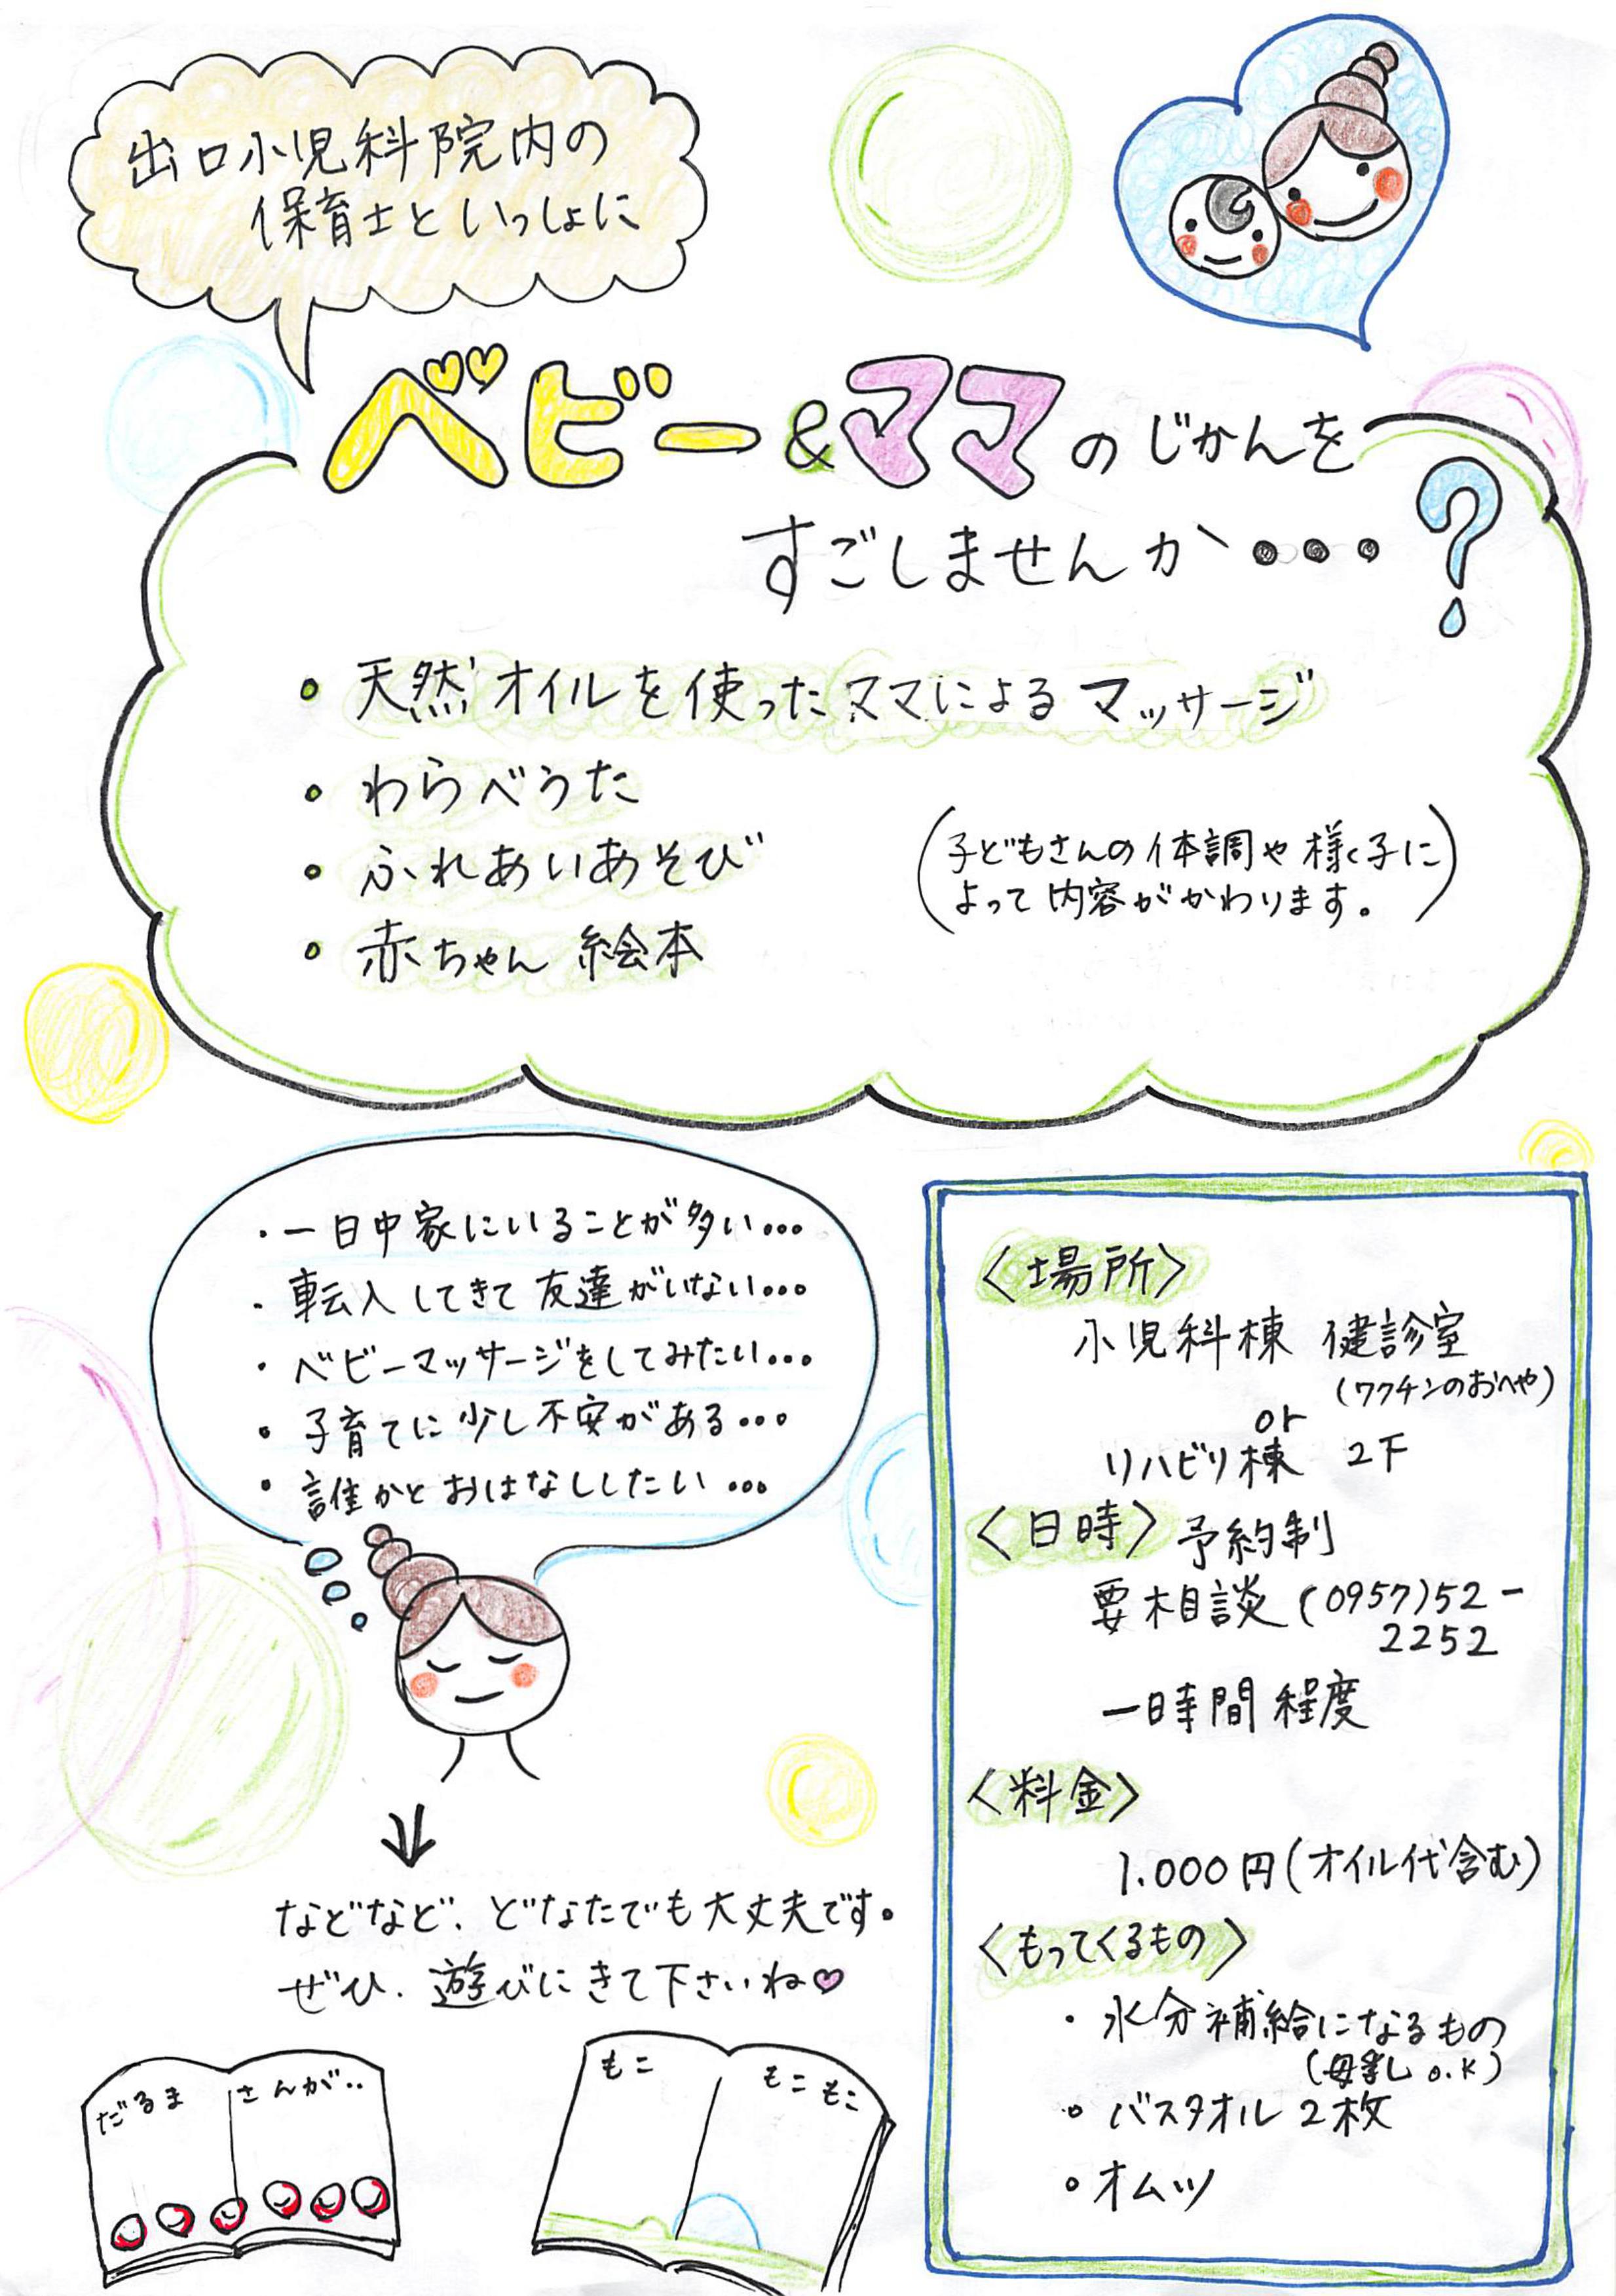 出口小児科院内の
保育士といっしょに
ベビー&ママのじかんを
すごしませんか・・・?
・天然オイルを使ったママによるマッサージ
・わらべうた
・ふれあいあそび
・赤ちゃん絵本
(子どもさんの体調や様子に
よって内容がかわります。)
・一日中家にいることが多い...
・転入してきて友達がいない...
・ベビーマッサージをしてみたい...
・子育てに少し不安がある...
・誰かとおはなししたい...
などなど、どなたでも大丈夫です。
ぜひ、遊びにきて下さいね♡
だるま さんが‥
もこ もこもこ
〈場所〉
小児科棟 健診室
(ワクチンのおへや)
or
リハビリ棟 2F
〈日時〉予約制
要相談(0957)52-
2252
一時間程度
〈料金〉
1.000円(オイル代含む)
〈もってくるもの〉
・水分補給になるもの
(母乳o.k)
・バスタオル2枚
・オムツ